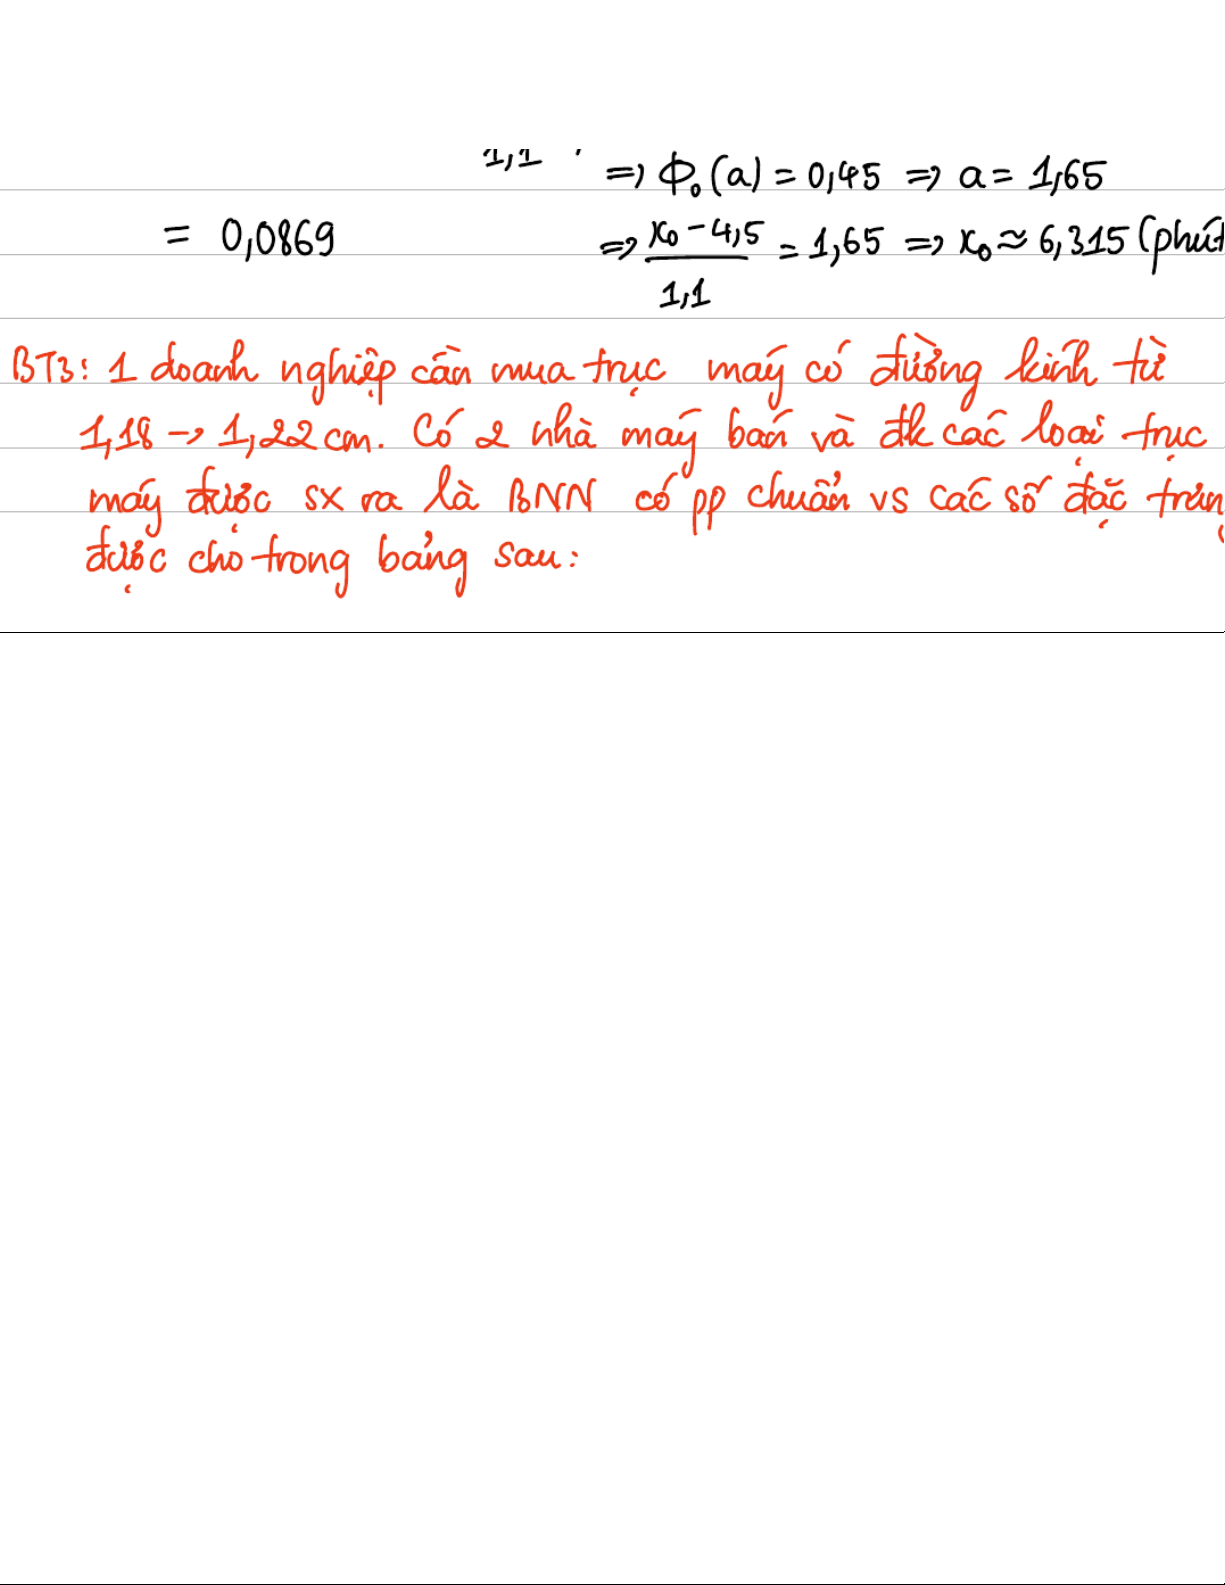 1,1
=> Φ₀(a) = 0,45 => a = 1,65
= 0,0869
=> (x₀ - 4,5) / 1,1 = 1,65 => x₀ ≈ 6,315 (phút
BT3: 1 doanh nghiệp cần mua trục máy có đường kính từ
1,18 → 1,22 cm. Có 2 nhà máy bán và đk các loại trục
máy được sx ra là BNN có pp chuẩn vs các số đặc trưng
được cho trong bảng sau: